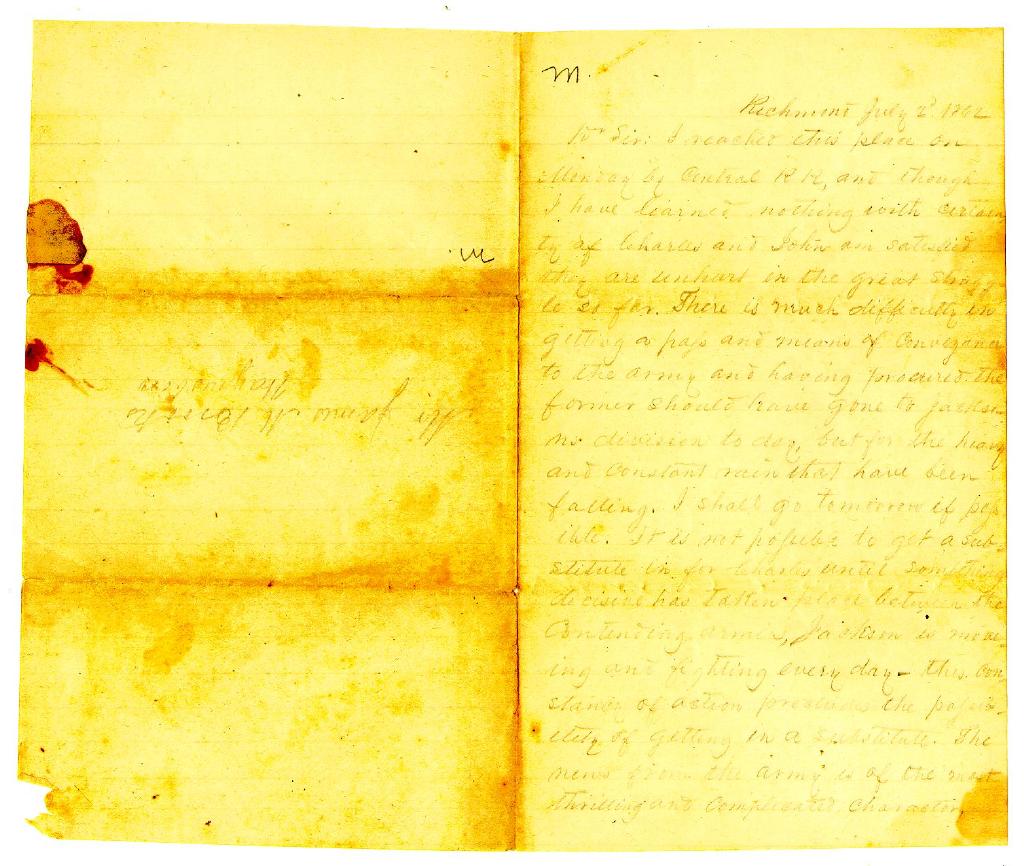 M.
Richmond July 2d 1862
Dr Sir: I reached this place on
Monday by Central R R, and though
I have learned nothing with certain
ty of Charles and John am satisfied
they are unhurt in the great strug
le so far. There is much difficulty in
getting a pass and means of Conveyance
to the army and having procured the
former should have gone to Jackson
ns division to day, but for the heavy
and Constant rain that have been
falling. I shall go tomorrow if pos
ible. It is not possible to get a sub-
stitute in for Charles until something
decisive has taken place between the
Contending armies, Jackson is mov
ing and fighting every day - this con
stancy of action precludes the possib-
ility of getting in a substitute. The
news from the army is of the most
thrilling and Complicated Character,
M
Mr James M